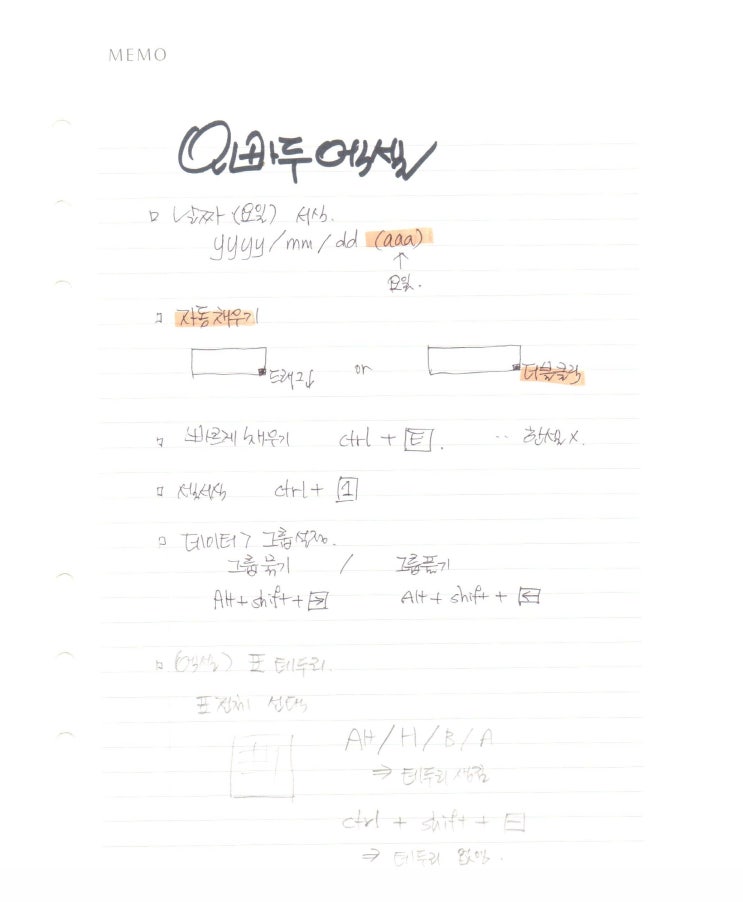 MEMO
오빠두엑셀
날짜 (요일) 서식.
yyyy/mm/dd (aaa)
↑
요일.
자동채우기
드래그 or 더블클릭
빠르게 채우기 ctrl + E. ·· 한셀 x.
셀서식 ctrl + 1
데이터 > 그룹설정.
그룹묶기 / 그룹풀기
Alt + shift + → Alt + shift + ←
(엑셀) 표 테두리.
표전체 선택
Alt / H / B / A
⇒ 테두리 생김
ctrl + shift + -
⇒ 테두리 없앰.